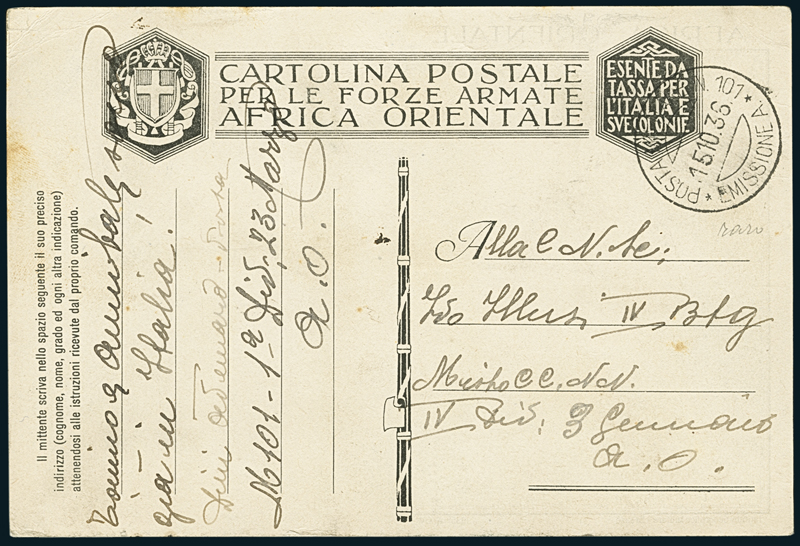 CARTOLINA POSTALE
PER LE FORZE ARMATE
AFRICA ORIENTALE
ESENTE DA
TASSA PER
L'ITALIA E
SVE COLONIE
POSTA N. 101
15.10.36
EMISSIONE A
raro
Il mittente scriva nello spazio seguente il suo preciso
indirizzo (cognome, nome, grado ed ogni altra indicazione)
attenendosi alle istruzioni ricevute dal proprio comando.
Annibale
già in Italia!
M 101 - 1ª Div. 23 Marzo
A. O.
Alla C. N. Sc.
IV Btg
Misto CC. NN.
IV Div. 3 Gennaio
A. O.